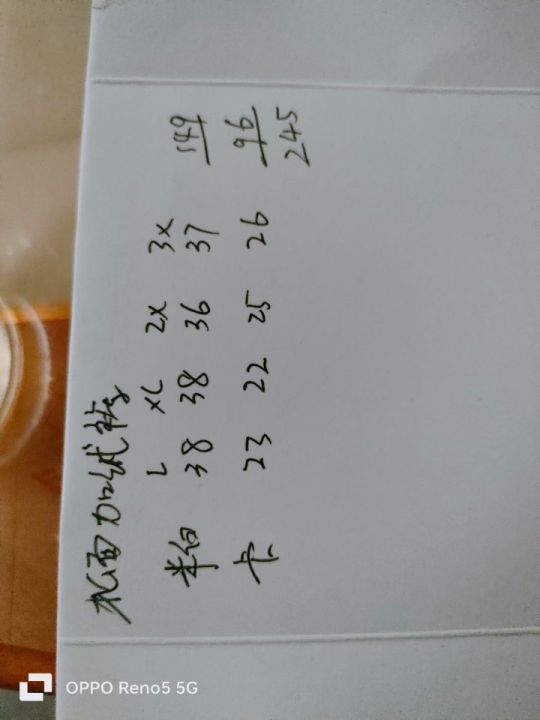 面加绒裤
L XL 2X 3X
米白 38 38 36 37 149
卡 23 22 25 26 96
245
OPPO Reno5 5G